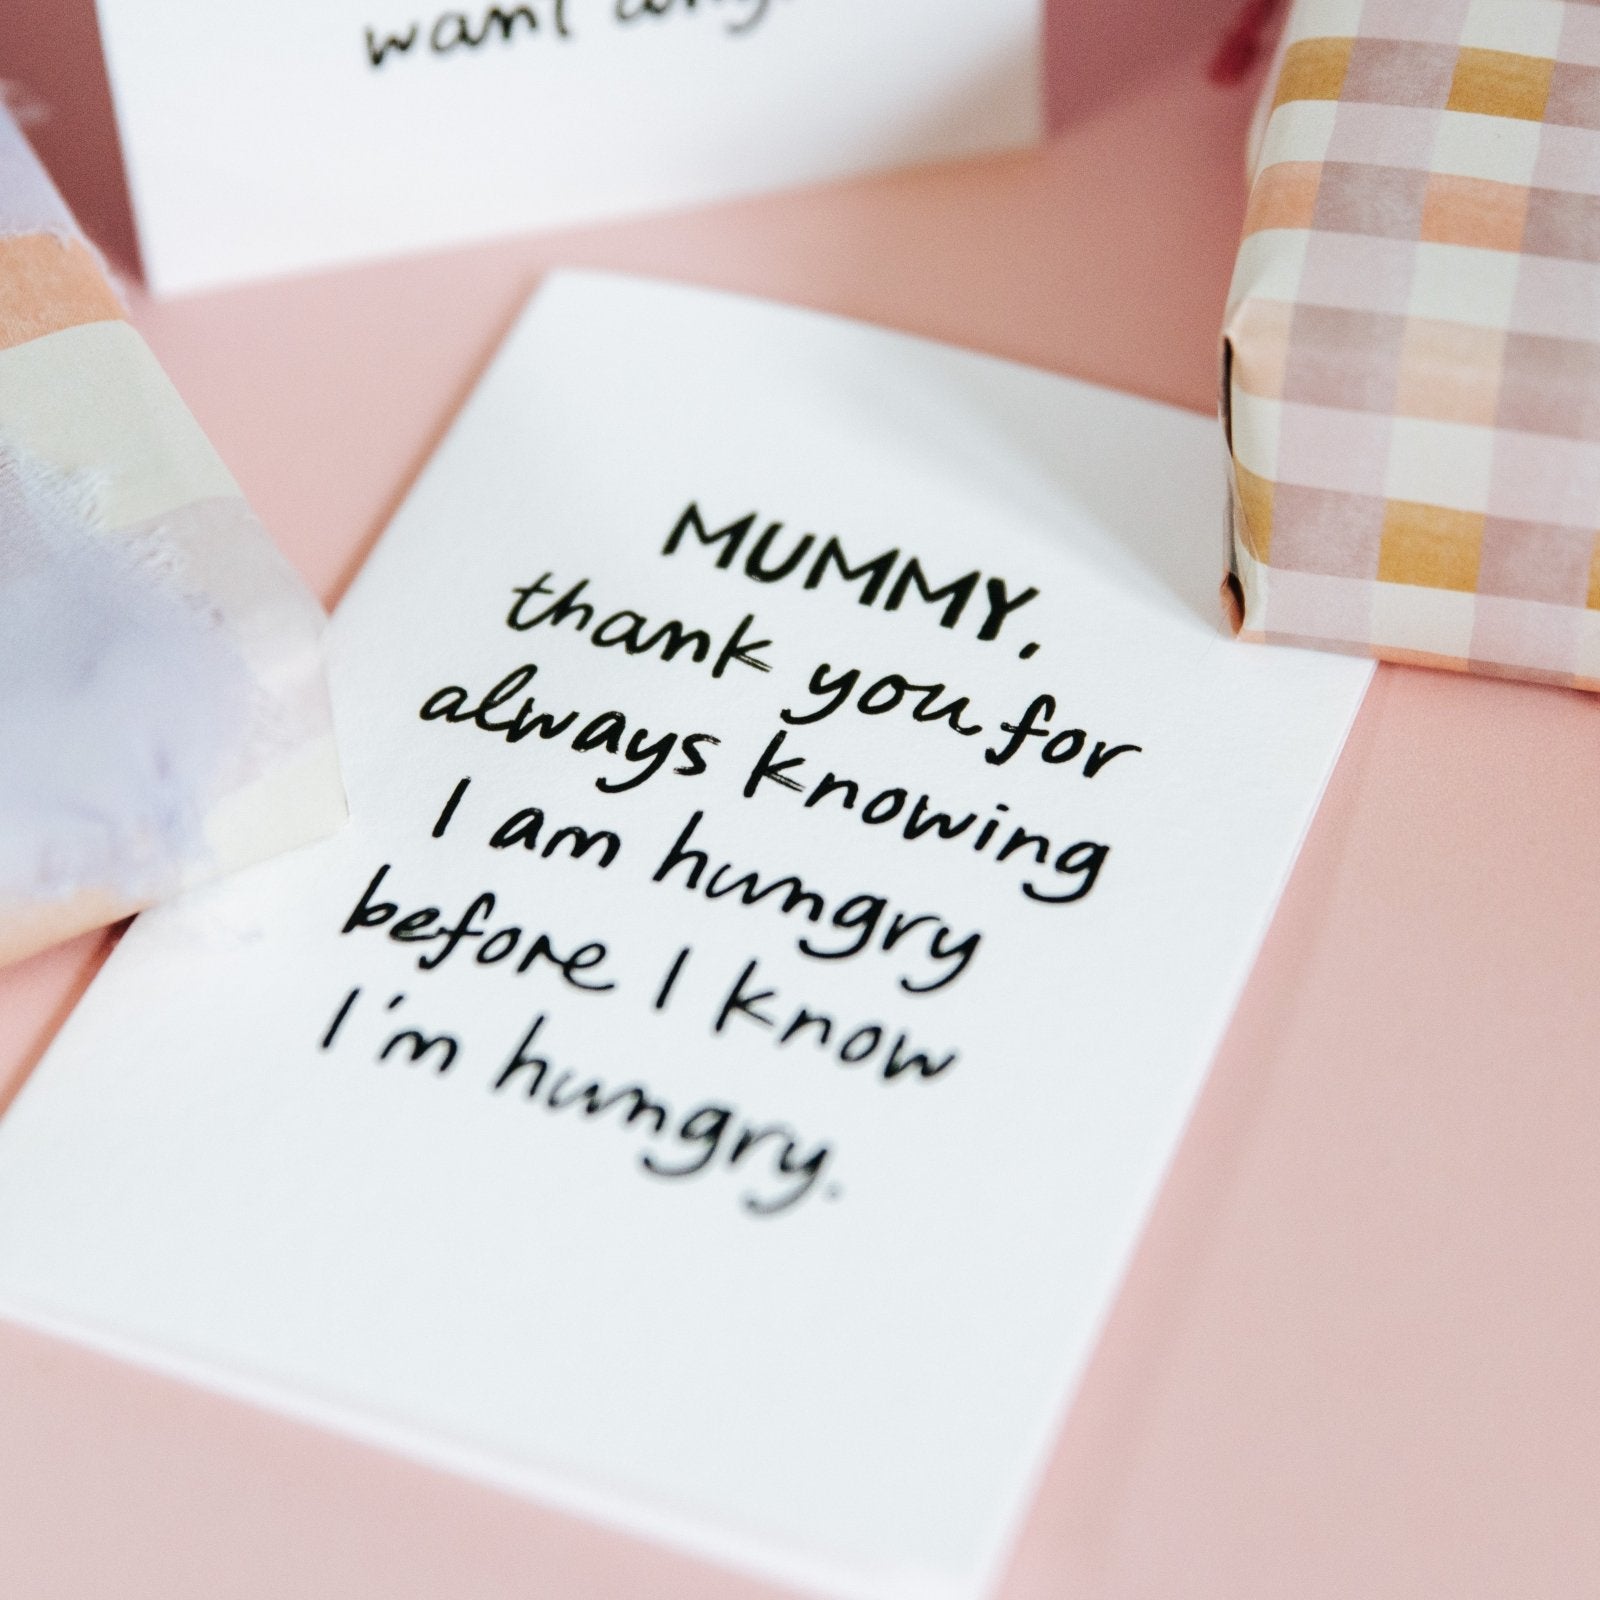 want
MUMMY,
thank you for
always knowing
I am hungry
before I know
I'm hungry.